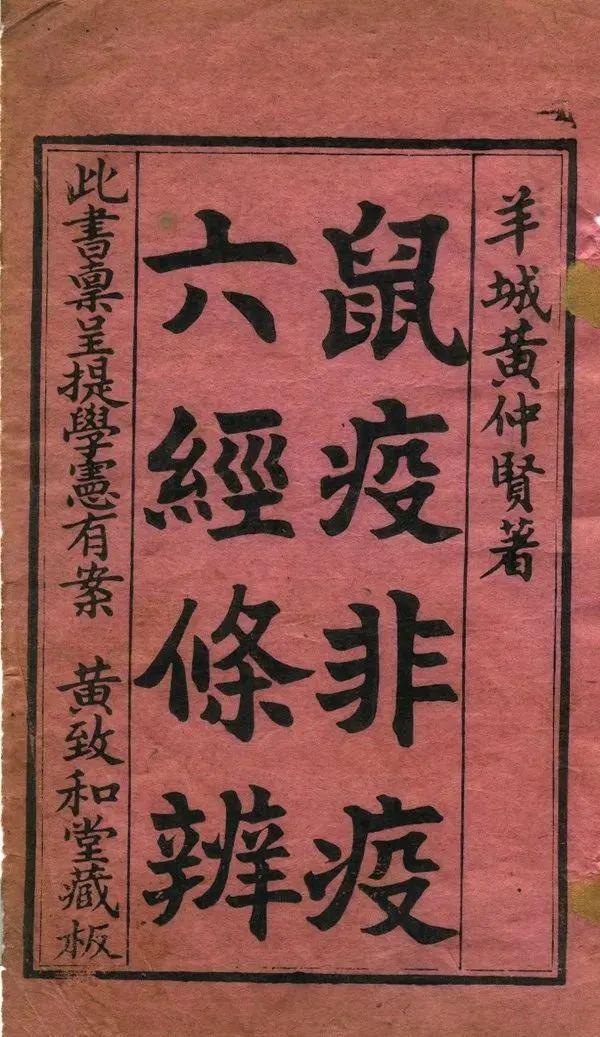 羊城黃仲賢著
鼠疫非疫
六經條辨
此書稟呈提學憲有案 黃致和堂藏板